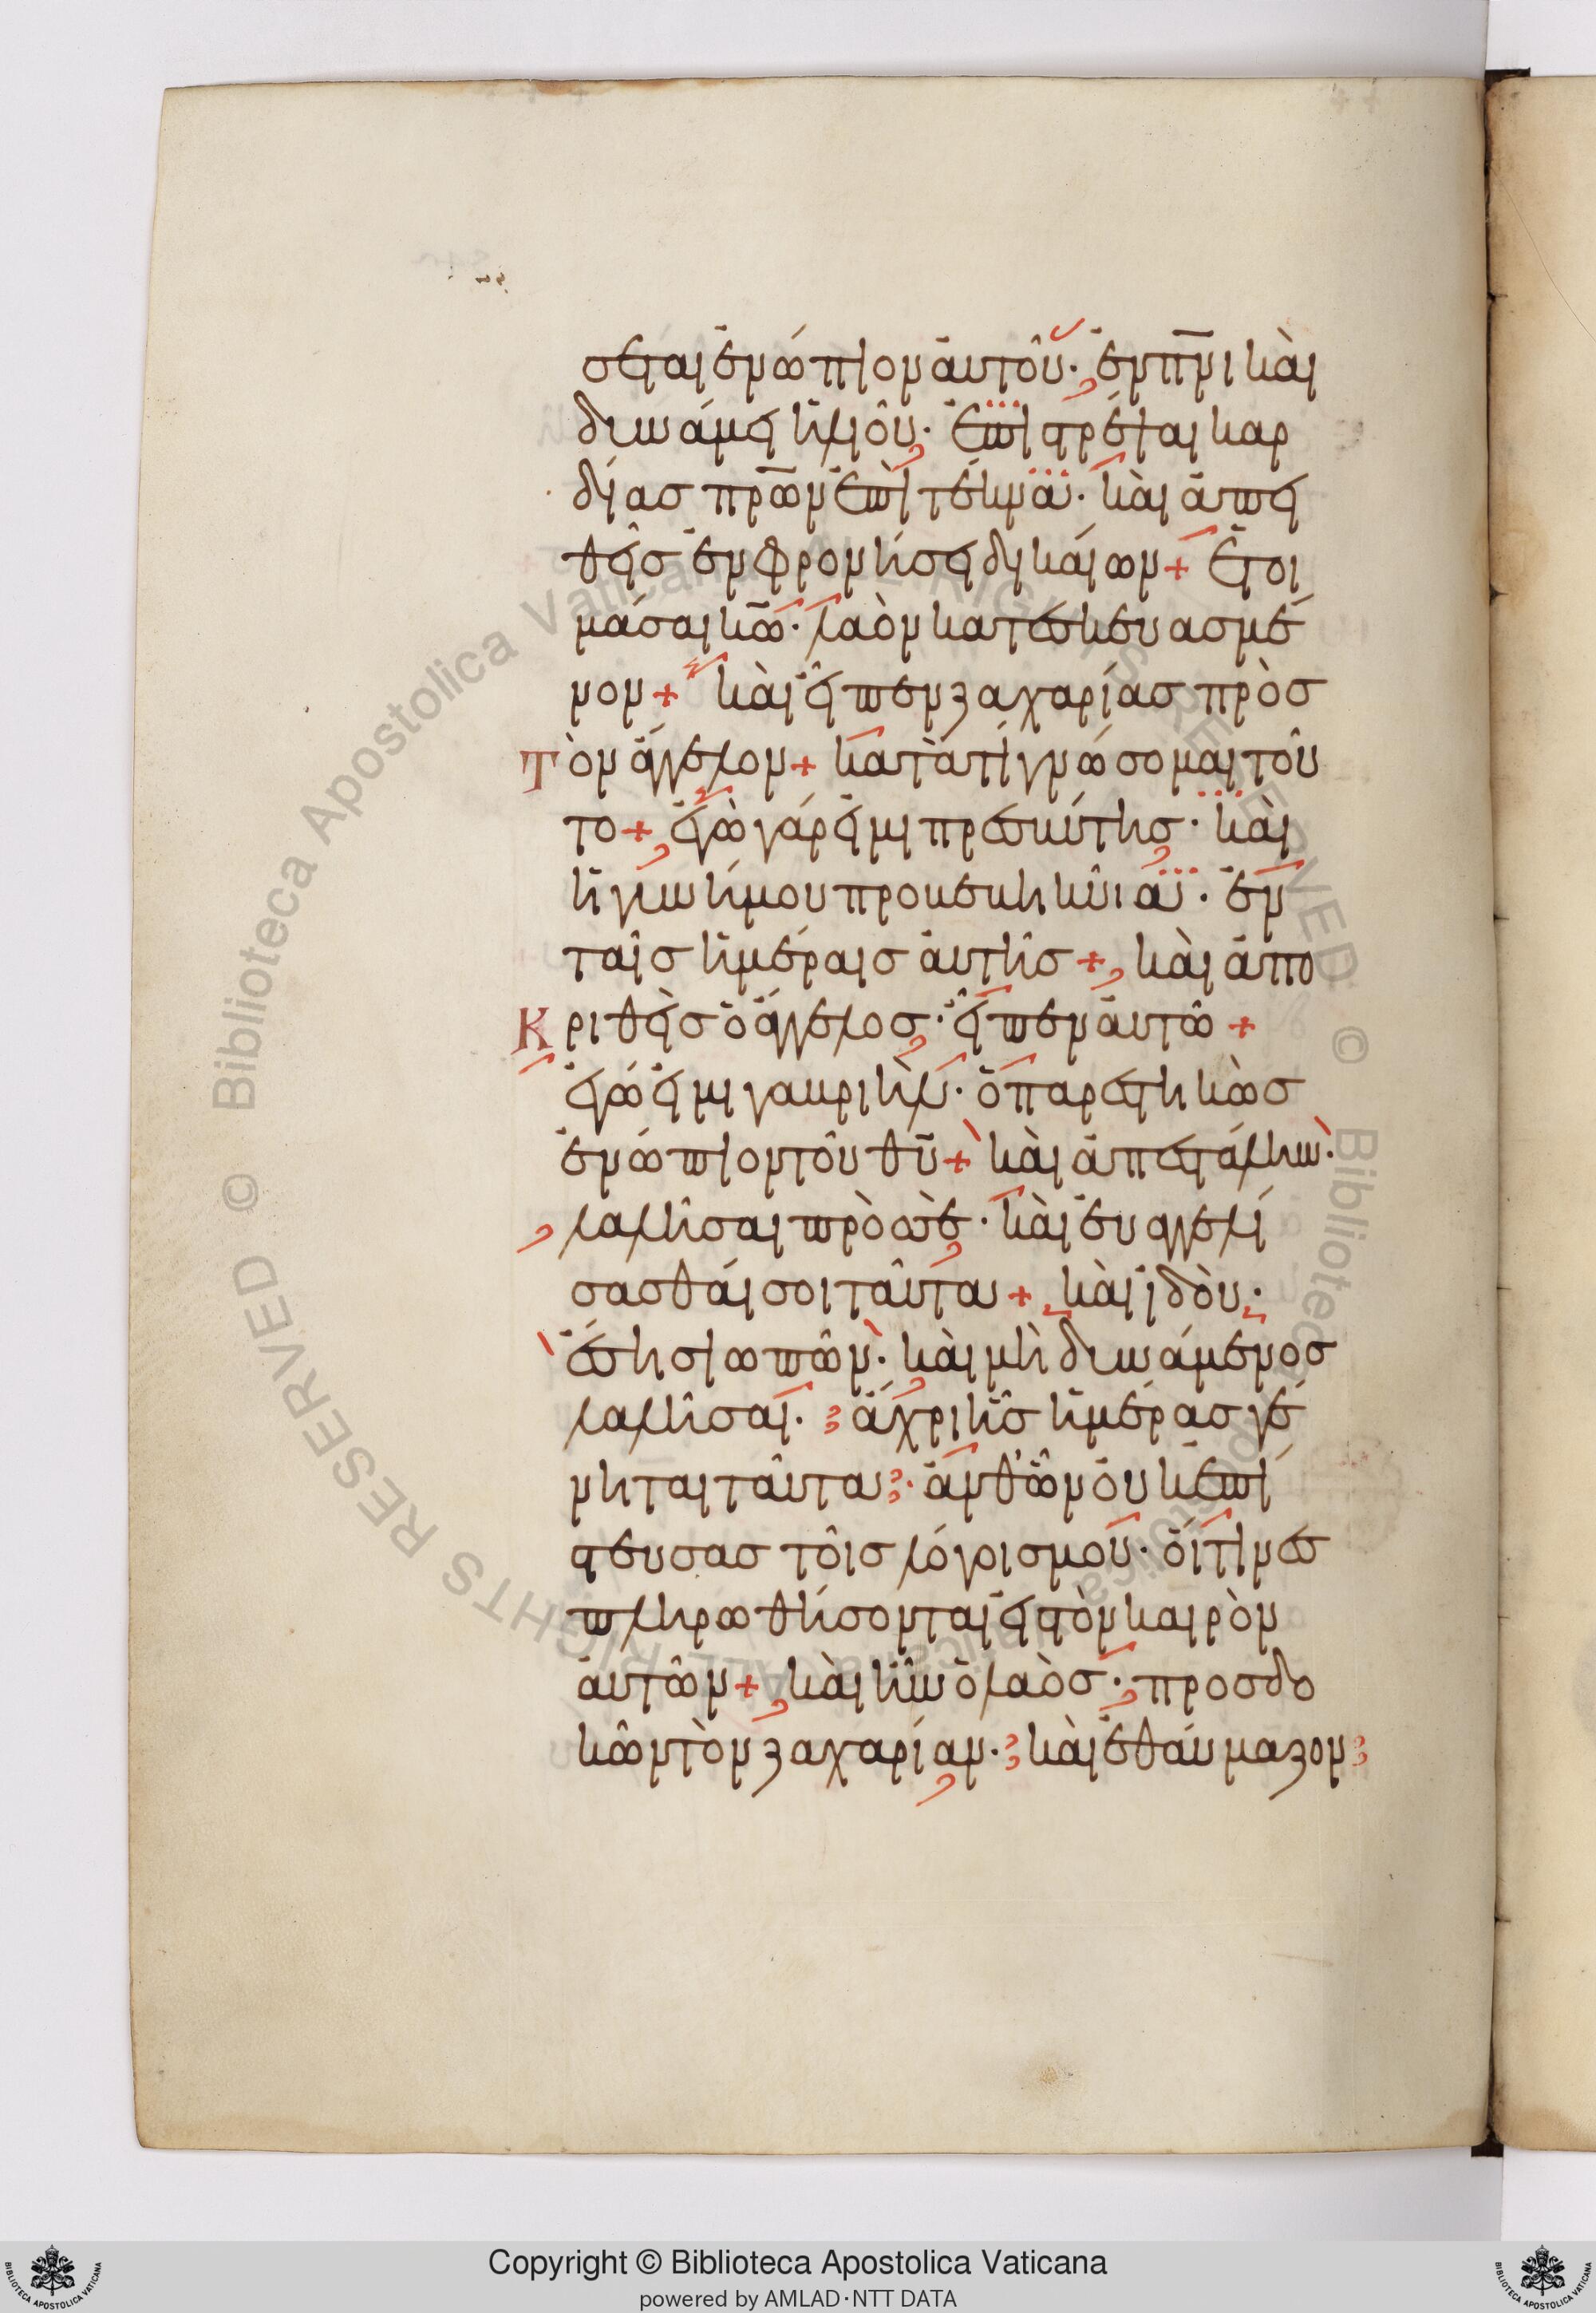 σεται ἐνώπιον αὐτοῦ· ἐν πνι καὶ
δυνάμει ἡλιοῦ· ἐπιστρέψαι καρ
δίας πρων ἐπὶ τέκνα· καὶ ἀπει
θεῖς ἐν φρονήσει δικαίων + ἑτοι
μάσαι κω· λαὸν κατεσκευασμέ
νον + καὶ εἶπεν ζαχαρίας πρὸς
Τὸν ἄγγελον + κατὰ τί γνώσομαι τοῦ
το + ἐγὼ γάρ εἰμι πρεσβύτης· καὶ
ἡ γυνή μου προβεβηκυῖα· ἐν
ταῖς ἡμέραις αὐτῆς + καὶ ἀπο
Κριθεὶς ὁ ἄγγελος· εἶπεν αὐτῶ +
ἐγώ εἰμι γαβριὴλ· ὁ παρεστηκὼς
ἐνώπιον τοῦ θυ + καὶ ἀπεστάλην·
λαλῆσαι πρὸς σὲ· καὶ εὐαγγελί
σασθαί σοι ταῦτα + καὶ ἰδοὺ·
ἔση σιωπῶν· καὶ μὴ δυνάμενος
λαλῆσαι· ἄχρι ἧς ἡμέρας γέ
νηται ταῦτα· ἀνθ' ὧν οὐκ ἐπί
στευσας τοῖς λόγοις μου· οἵτινες
πληρωθήσονται εἰς τὸν καιρὸν
αὐτῶν + καὶ ἦν ὁ λαὸς· προσδο
κῶν τὸν ζαχαρίαν· καὶ ἐθαύμαζον
Copyright © Biblioteca Apostolica Vaticana
powered by AMLAD·NTT DATA